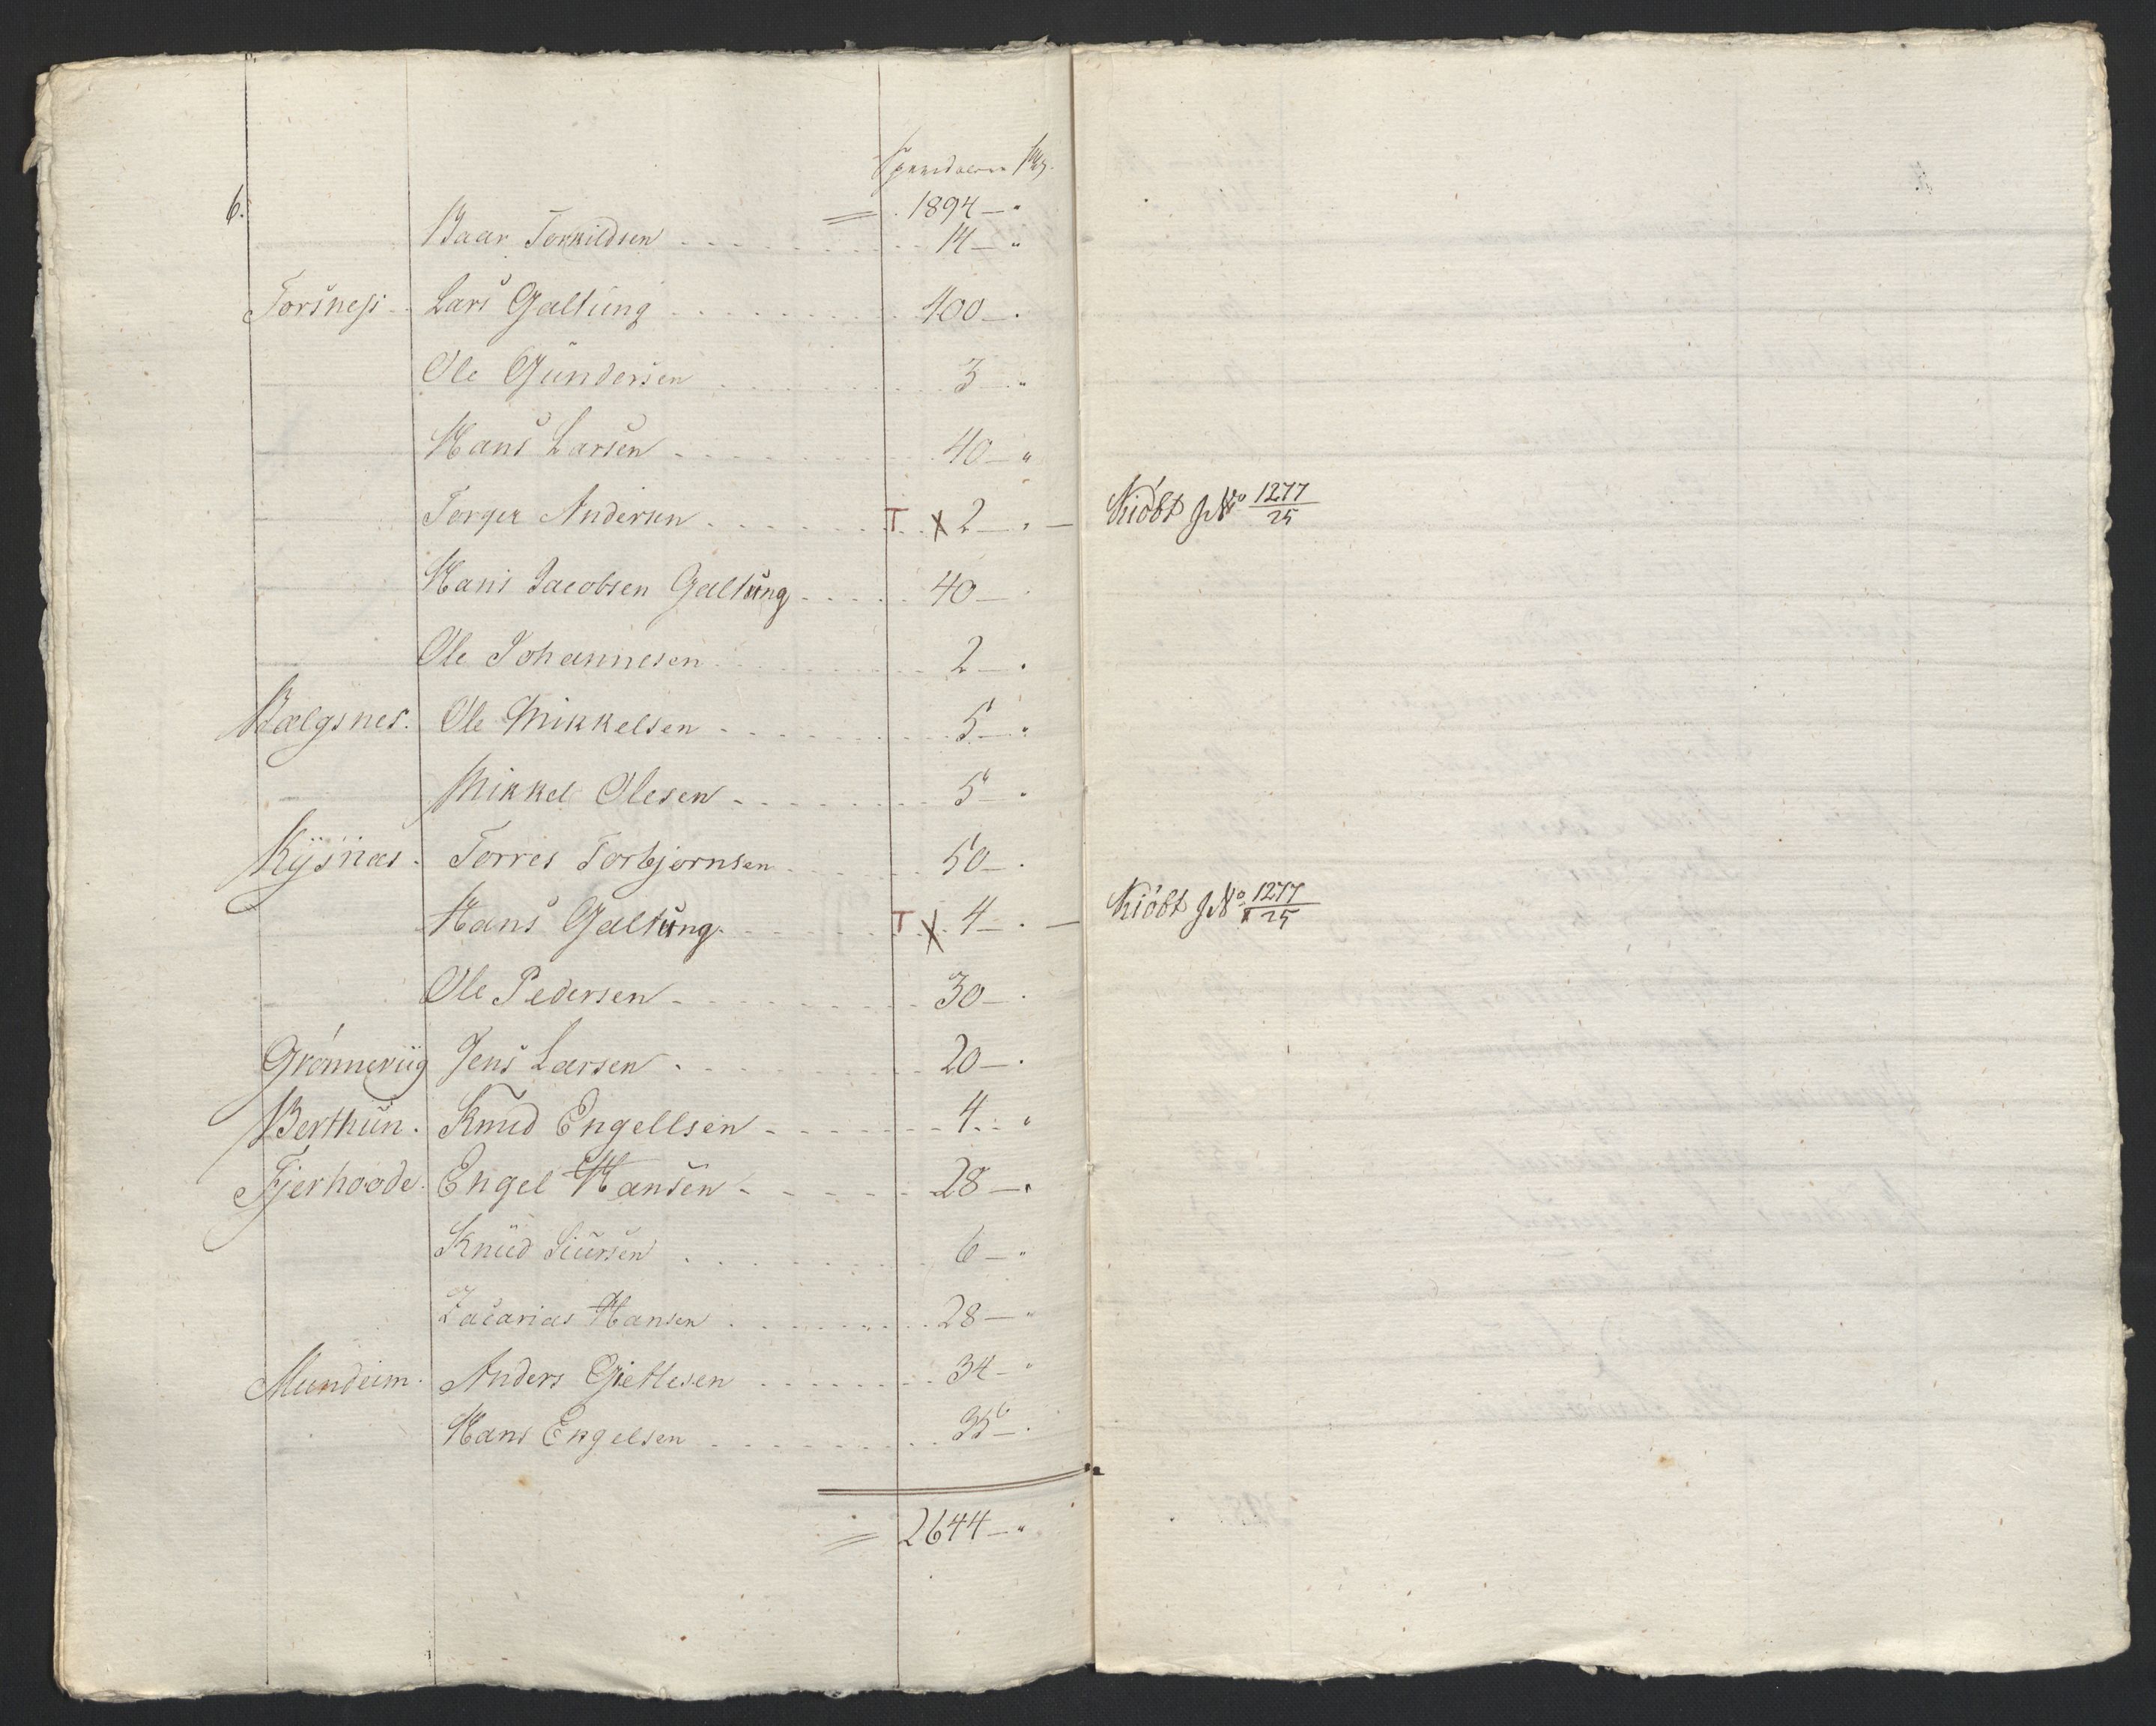 Speciedaler ſkg.
6. = 1894 — "
Baar Torkildsen 14 — "
Torsness Lars Galtung 400 — .
Ole Gundersen 3 — "
Hans Larsen 40 — "
Torger Andersen T x 2 — . — Kiöbt J No 1277/25
Hans Jacobsen Galtung 40 —
Ole Johannesen 2 — .
Bælgsnes. Ole Mikkelsen 5 — "
Mikkel Olesen 5 — "
Kysnæs. Torres Torbjørnsen 50 — .
Hans Galtung T x 4 — . — Kiöbt J No 1277/25
Ole Pedersen 30 — .
Grønneviig Jens Larsen 20 — .
Berthun. Knud Engellsen 4 . "
Fjerhoode. Engel Hansen 28 — "
Knud Siursen 6 — "
Zacarias Hansen 28 — "
Mundeim. Anders Gietlesen 34 — "
Hans Engelsen 35 — .
= 2644 — "